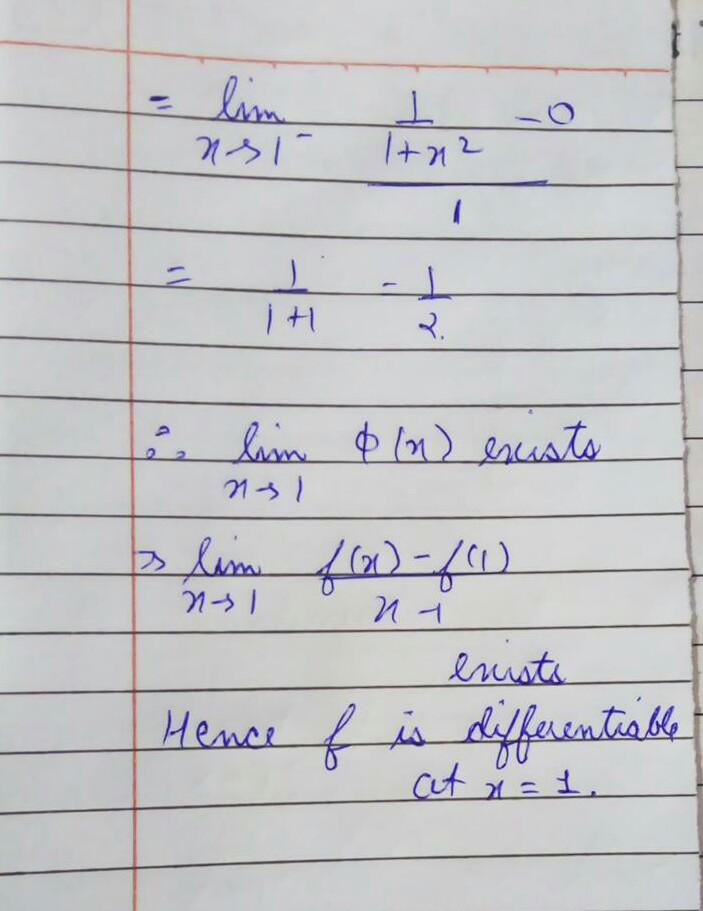 = lim 1 - 0
x→1⁻ 1+x²
1
= 1 = 1
1+1 2.
∴ lim φ(x) exists
x→1
⇒ lim f(x) - f(1)
x→1 x-1
exists
Hence f is differentiable
at x = 1.